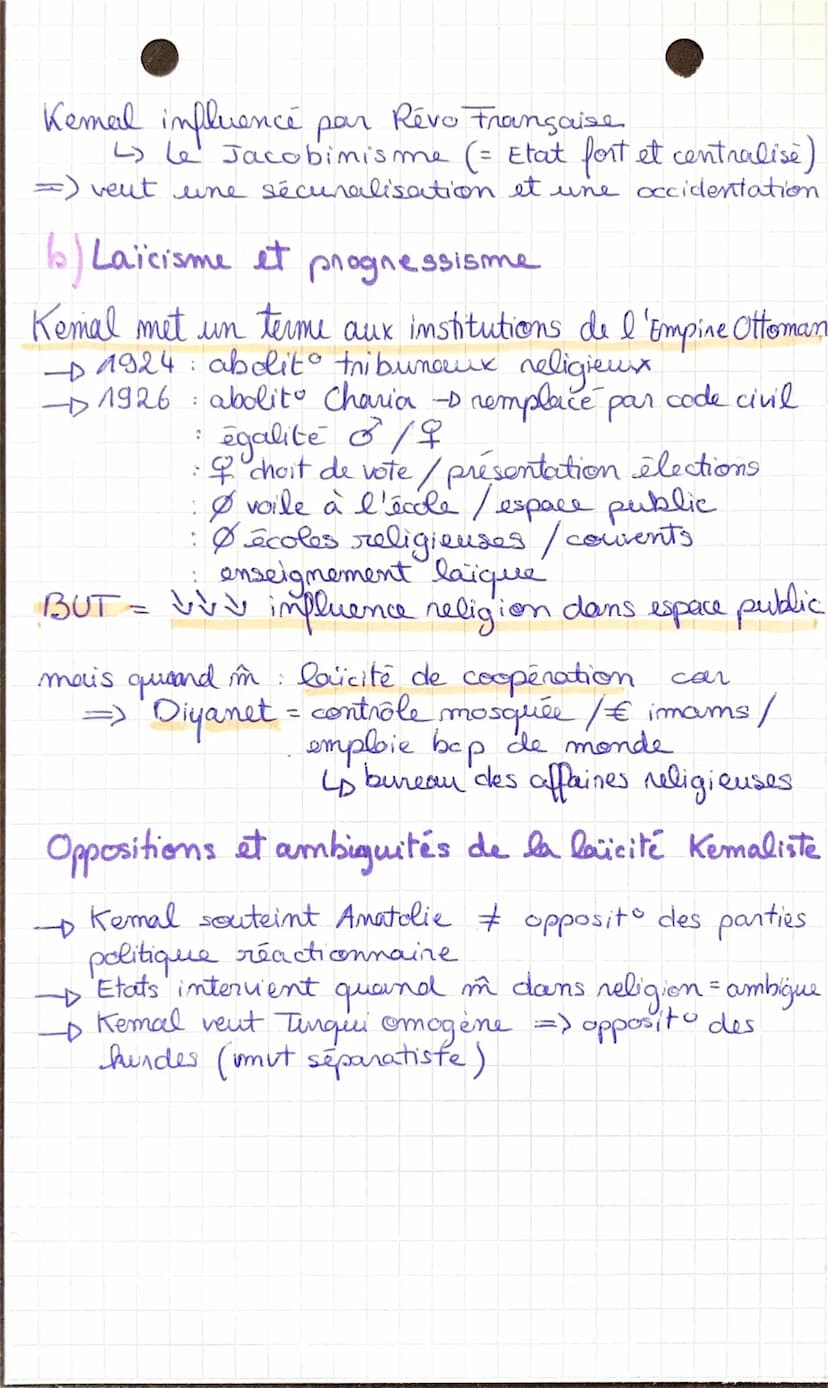 Kemal influencé par Révo Française
↳ Le Jacobinisme (= Etat fort et centralisé)
=> veut une sécuralisation et une occidentation
b) Laïcisme et progressisme
Kemal met un terme aux institutions de l'Empire Ottoman
→ 1924 : abolit° tribunaux religieux
→ 1926 : abolit° Charia → remplacé par code civil
: égalité ♂ / ♀
: ♀ droit de vote / présentation élections
: Ø voile à l'école / espace public
: Ø écoles religieuses / couvents
: enseignement laïque
BUT = ↓↓↓ influence religion dans espace public
mais quand m̂ : laïcité de coopération car
=> Diyanet = contrôle mosquée / € imams /
emploie bcp de monde
↳ bureau des affaires religieuses
Oppositions et ambiguités de la laïcité Kemaliste
→ Kemal souteint Anatolie ≠ opposit° des parties
politique réactionnaire
→ Etats intervient quand m̂ dans religion = ambigüe
→ Kemal veut Turqui omogène => opposit° des
kurdes (mvt séparatiste)